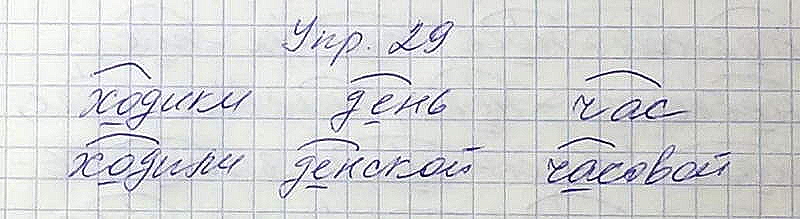 Упр. 29
ходики день час
ходили денской часовой